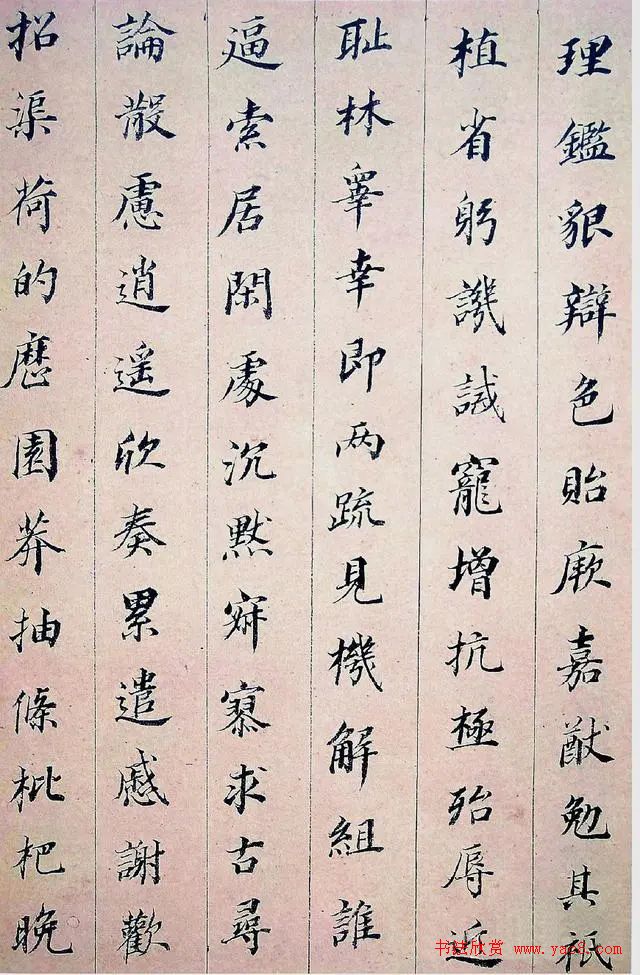 理鑑貌辯色貽厥嘉猷勉其祇
植省躬譏誡寵增抗極殆辱近
耻林睾幸即两疏見機解組誰
逼索居閑處沉默寂寥求古尋
論散慮逍遥欣奏累遣慼謝歡
招渠荷的歷園莽抽條枇杷晚
书法欣赏 www.yac8.com